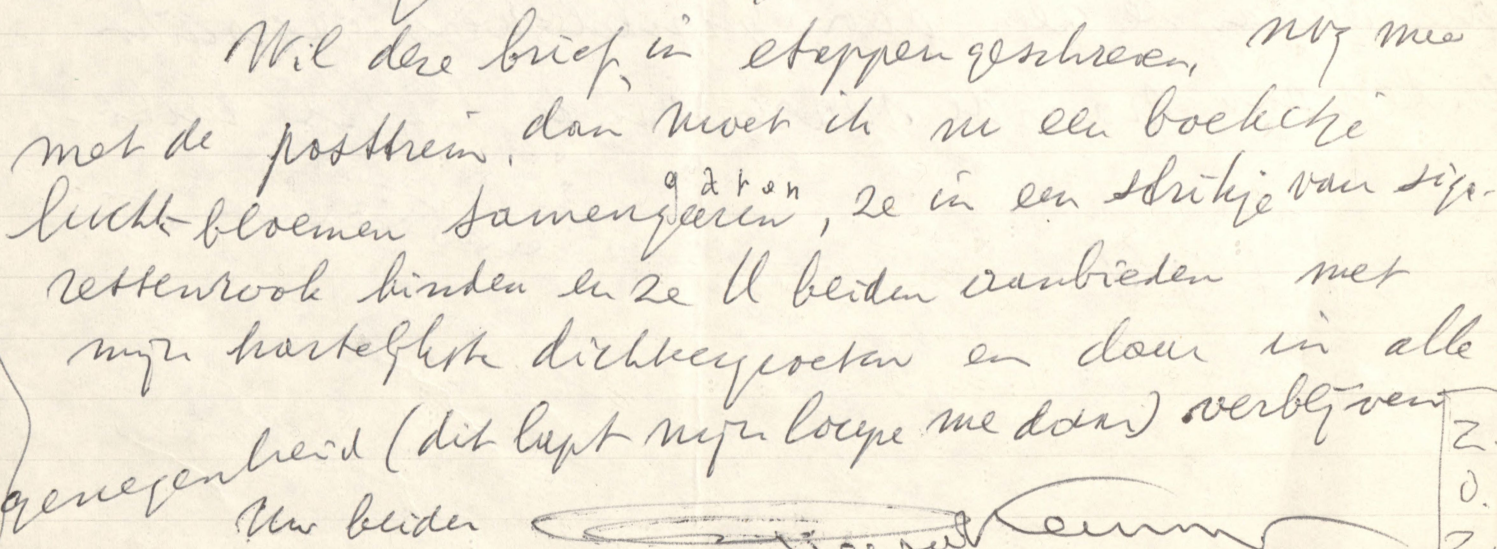 Wil deze brief, in etappen geschreven, nog mee
met de posttrein, dan moet ik nu een boeketje
lucht-bloemen samengaren, ze in een strikje van siga-
rettenrook binden en ze U beiden aanbieden met
mijn hartelijkste dichtergroeten en daar in alle
genegenheid (dit lapt mijn loupe me daar) verblijven
Uw beider